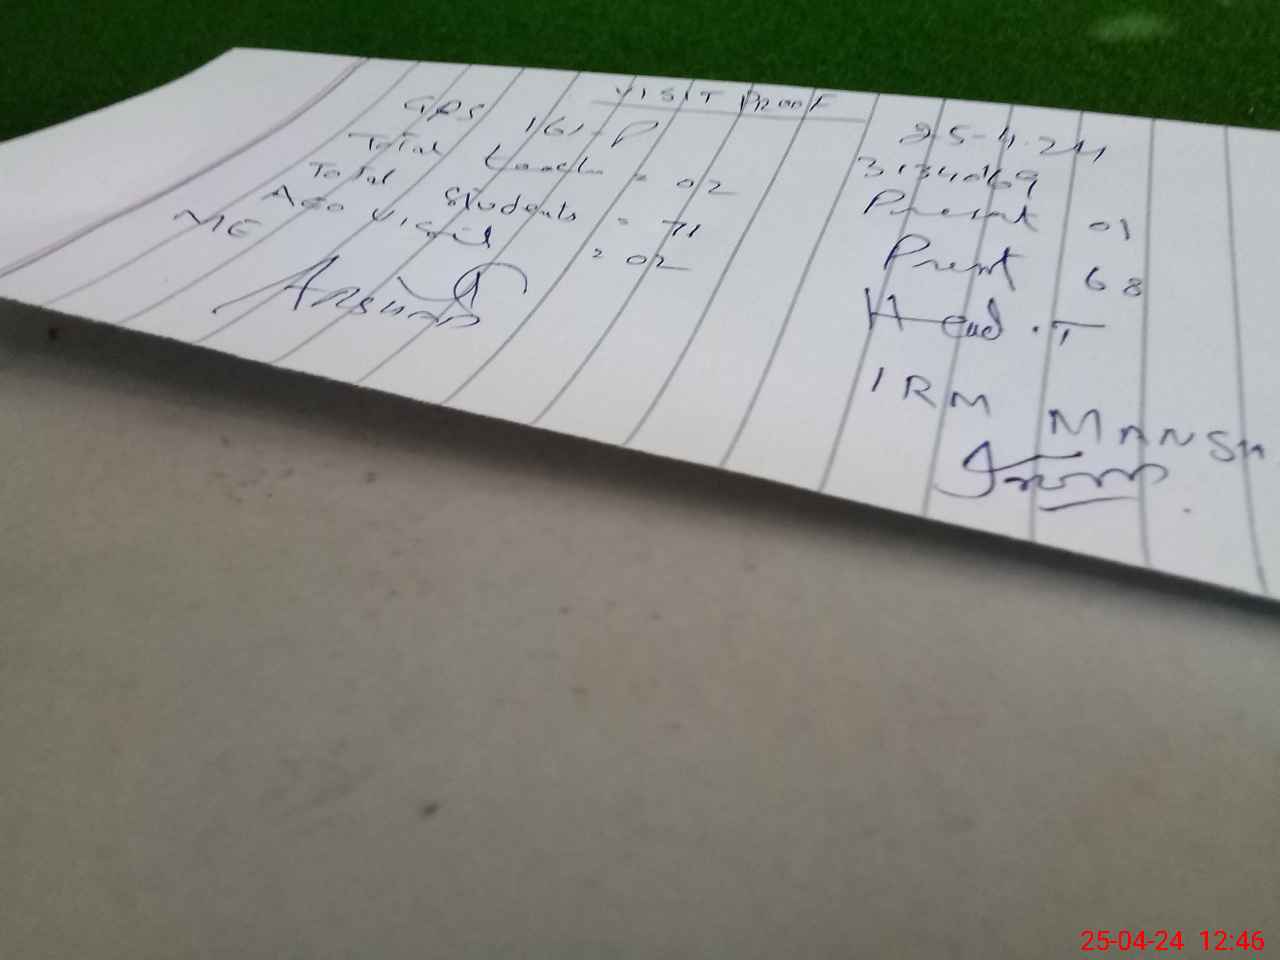 VISIT PROOF
25-4.24
GPS 161-P 3134069
Total teach = 02 Present 01
Total Students = 71 Present 68
AEO Visit = 02 Head.T
ME
IRM MANSH
25-04-24 12:46